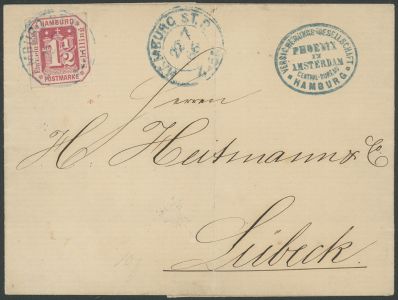 HAMBURG
1½
POSTMARKE
HAMBURG ST. P.
VERSICHERUNGS-GESELLSCHAFT
PHOENIX
IN
AMSTERDAM
CENTRAL-BUREAU
HAMBURG
Herren
H. Heitmann & C
Lübeck.